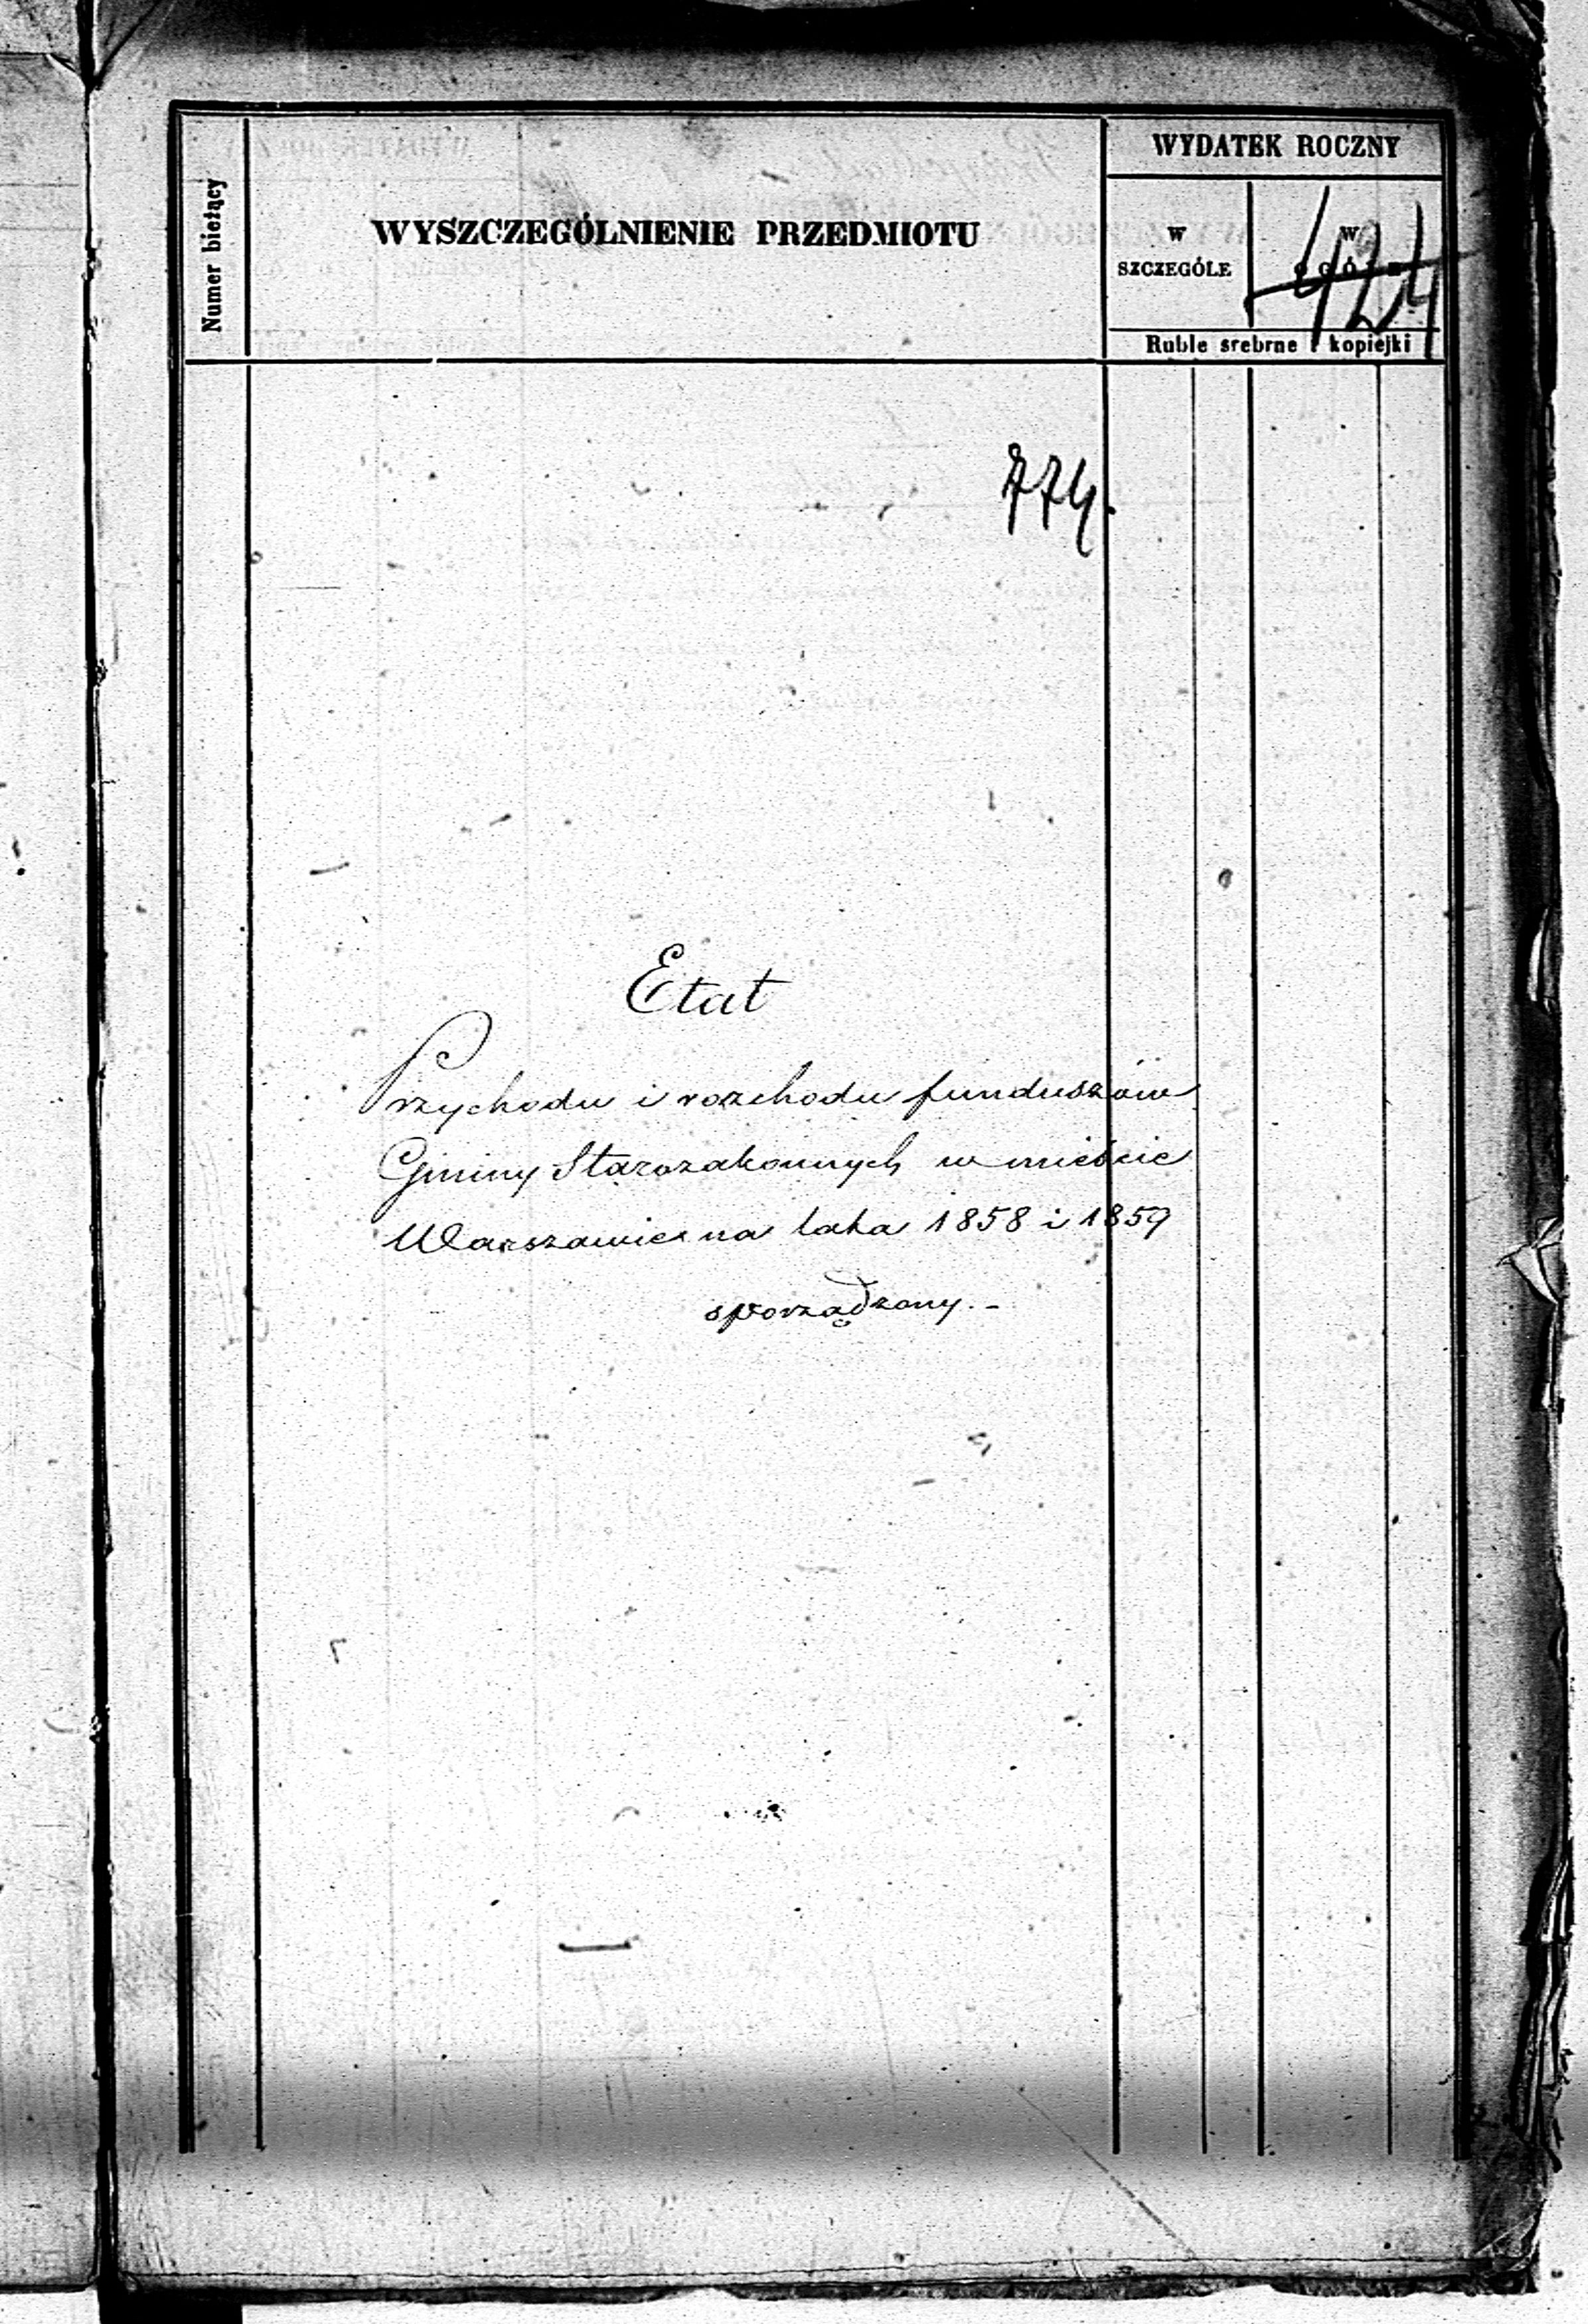 WYDATEK ROCZNY
Numer bieżący
WYSZCZEGÓLNIENIE PRZEDMIOTU
W SZCZEGÓLE
W OGÓLE
424
Ruble srebrne i kopiejki
774.
Etat
Przychodu i rozchodu funduszów
Gminy Starozakonnych w mieście
Warszawie na lata 1858 i 1859
sporządzony.-